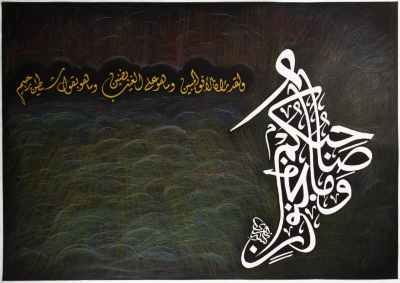 وما صاحبكم بمجنون
ولقد رآه بالأفق المبين وما هو على الغيب بضنين وما هو بقول شيطان رجيم